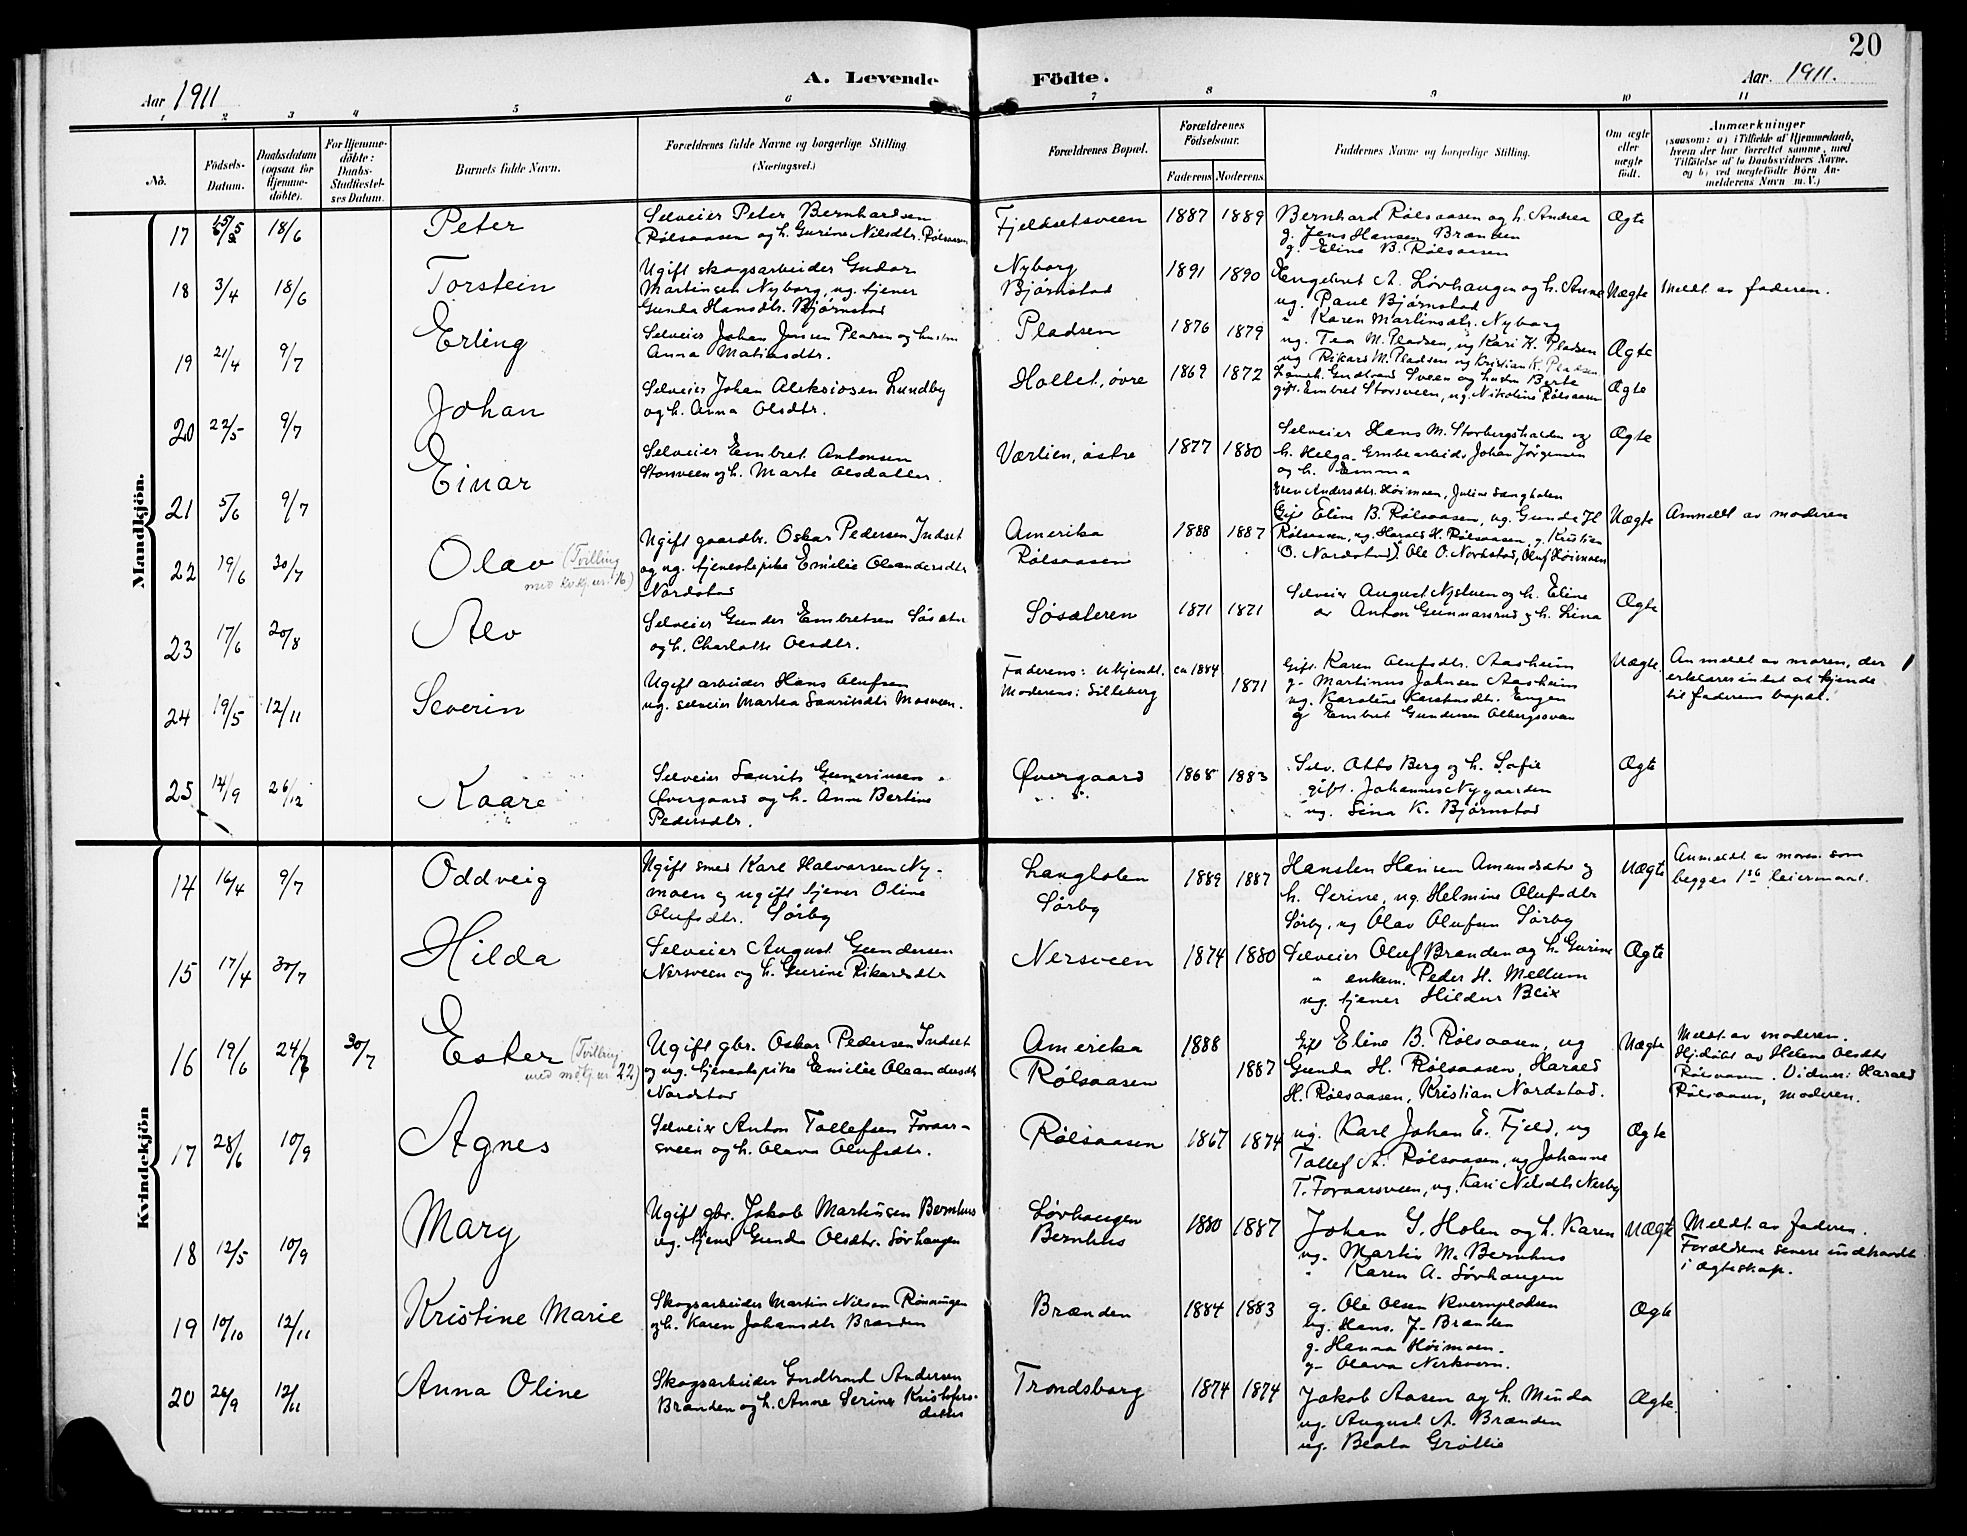 20
A. Levende Födte.
Aar 1911
Aar 1911.
1 2 3 4 5 6 7 8 9 10 11
No.
Födsels-
Datum.
Daabsdatum
(ogsaa for
Hjemme-
döbte).
For Hjemme-
döbte:
Daabs-
Stadfæstel-
ses Datum.
Barnets fulde Navn.
Forældrenes fulde Navne og borgerlige Stilling
(Næringsvei.)
Forældrenes Bopæl.
Forældrenes
Födselsaar.
Faderens Moderens
Faddernes Navne og borgerlige Stilling.
Om ægte
eller
uægte
födt.
Anmærkninger
(saasom: a) i Tilfælde af Hjemmedaab,
hvem der har forrettet samme, med
Tilföielse af to Daabsvidners Navne.
og b) ved uægtefödte Börn An-
melderens Navn m. V.)
Mandkjön.
17 18/6 Peter
Selveier Peter Bernhardsen
Rølsaasen og h. Gurine Nilsdtr. Rølsaasen
Fjeldsetsveen 1887 1889
Bernhard Rølsaasen og h. Andrea
g. Jens Hansen Brænden
g. Eline B. Rølsaasen
Ægte
18 3/4 18/6 Torstein
Ugift skogsarbeider Gudor
Martinsen Nyborg, ug. tjener
Gunda Hansdtr. Bjørnstad
Nyborg
Bjørnstad
1891 1890
Engebret A. Løvhaugen og h. Anne
ug. Paul Bjørnstad
" Karen Martinsdtr. Nyborg
Uægte Meldt av faderen.
19 21/4 9/7 Erling
Selveier Johan Jensen Pladsen og hustru
Anna Matiasdtr.
Pladsen 1876 1879
ug. Tea M. Pladsen, ug Kari K. Pladsen
ug Rikard M. Pladsen og Kristian K. Pladsen
Ægte
20 22/5 9/7 Johan
Selveier Johan Aleksiosen Lundby
og h. Anna Olsdtr.
Hollet, øvre 1869 1872
Gudbrand Sveen og hustru Berte
gift. Embret Storsveen, ug. Nikoline Rølsaasen
Ægte
21 5/6 9/7 Einar
Selveier Embret Antonsen
Storsveen og h. Marte Olsdatter.
Værlien, østre 1877 1880
Selveier Hans M. Storbergshalden og
h. Helga. Johan Jørgensen
og h. Emma
Ægte
22 19/6 30/7 Olav (Tvilling
med kvkj. nr. 16)
Ugift gaardbr. Oskar Pedersen Indset
og ug. tjenestepike Emilie Oleandersdtr
Nordstad
Amerika
Rølsaasen
1888 1887
Andersdtr. Høimoen, Julius Langholen
Gift Eline B. Rølsaasen, ug. Gunda H
Rølsaasen, ug. Harald H. Rølsaasen, g. Kristian
O. Nordstad, Ole O. Nordstad, Oluf Høimoen
Uægte Anmeldt av moderen
23 17/6 20/8 Alv
Selveier Gunder Embretsen Søsæter
og h. Charlotte Olsdtr.
Søsæteren 1871 1871
Selveier August Nystuen og h. Eline
" Anton Gunnarsrud og h. Lina
Ægte
24 19/5 12/11 Severin
Ugift arbeider Hans Olufsen
ug. selveier Martea Lauritsdtr Mosveen.
Faderens: ukjendt.
Moderens: Silleberg
ca 1884 1871
Gift. Karen Olufsdtr. Aasheim
g. Martinus Johnsen Aasheim
ug. Karoline Karstensdtr. Engen
g Embret Gundersen Olbergsveen
Uægte. Anmeldt av moren, der
erklærer intet at kjende
til faderens bopæl.
25 14/9 26/12 Kaare
Selveier Laurits Gunerinsen
Øvergaard og h. Anne Bertine
Pedersdtr.
Øvergaard 1868 1883
Selv. Otto Berg og h. Sofie
gift. Johannes Nygaarden
ug. Lina K. Bjørnstad
Ægte
Kvindekjön
14 16/4 9/7 Oddveig
Ugift smed Karl Halvorsen Ny-
moen og ugift tjener Oline
Olufsdtr. Sørby
Langholen
Sørby
1889 1887
Hansten Hansen Amundsætr og
h. Serine, ug. Helmine Olufsdtr
Sørby, ug Olav Olufsen Sørby
Uægte Anmeldt av moren som
begges 1ste leiermaal.
15 17/4 30/7 Hilda
Selveier August Gundersen
Nersveen og h. Gurine Rikardsdtr
Nersveen 1874 1880
Selveier Oluf Brænden og h. Gurine
" enkem. Peder H. Mellum
ug. tjener Hildur Beix
Ægte
16 19/6 30/7 Ester (Tvilling
med mdkj. nr. 22)
Ugift gbr. Oskar Pedersen Indset
og ug. tjenestepike Emilie Oleandersdtr
Nordstad
Amerika
Rølsaasen
1888 1887
Gift Eline B. Rølsaasen, ug
Gunda H. Rølsaasen, Harald
H. Rølsaasen, Kristian Nordstad.
Uægte Meldt av moderen.
Hjdøbt av Helene Olsdtr
Rølsaasen. Vidner: Harald
Rølsaasen, moderen.
17 28/6 10/9 Agnes
Selveier Anton Tollefsen Foraar-
sveen og h. Olava Olufsdtr.
Rølsaasen 1867 1874
ug. Karl Johan E. Fjeld, ug
Tollef A. Rølsaasen, ug Johanne
T. Foraarsveen, ug. Kari Nilsdtr Nerby
Ægte
18 12/5 10/9 Mary
Ugift gbr. Jakob Martinsen Bernhus
ug. tjener Gunda Olsdtr. Løvhaugen
Løvhaugen
Bernhus
1880 1887
Johan G. Holen og h. Karen
ug. Martin M. Bernhus
" Karen A. Løvhaugen
Uægte Meldt av faderen.
Forældrene senere indtraadt
i ægteskap.
19 10/10 12/11 Kristine Marie
Skogsarbeider Martin Nilsen Rønningen
og h. Karen Johansdtr Brænden
Brænden 1884 1883
g. Ole Olsen Kvernpladsen
ug. Hans J. Brænden
g. Hanna Høimoen.
g. Olava Nerkvern.
Ægte
20 26/9 12/11 Anna Oline
Skogsarbeider Gudbrand Andersen
Brænden og h. Anne Serine Kristofers-
datter
Trondsborg 1874 1874
Jakob Aasen og h. Minda
ug. August A. Brænden
ug. Beata Grøtlie
Ægte.